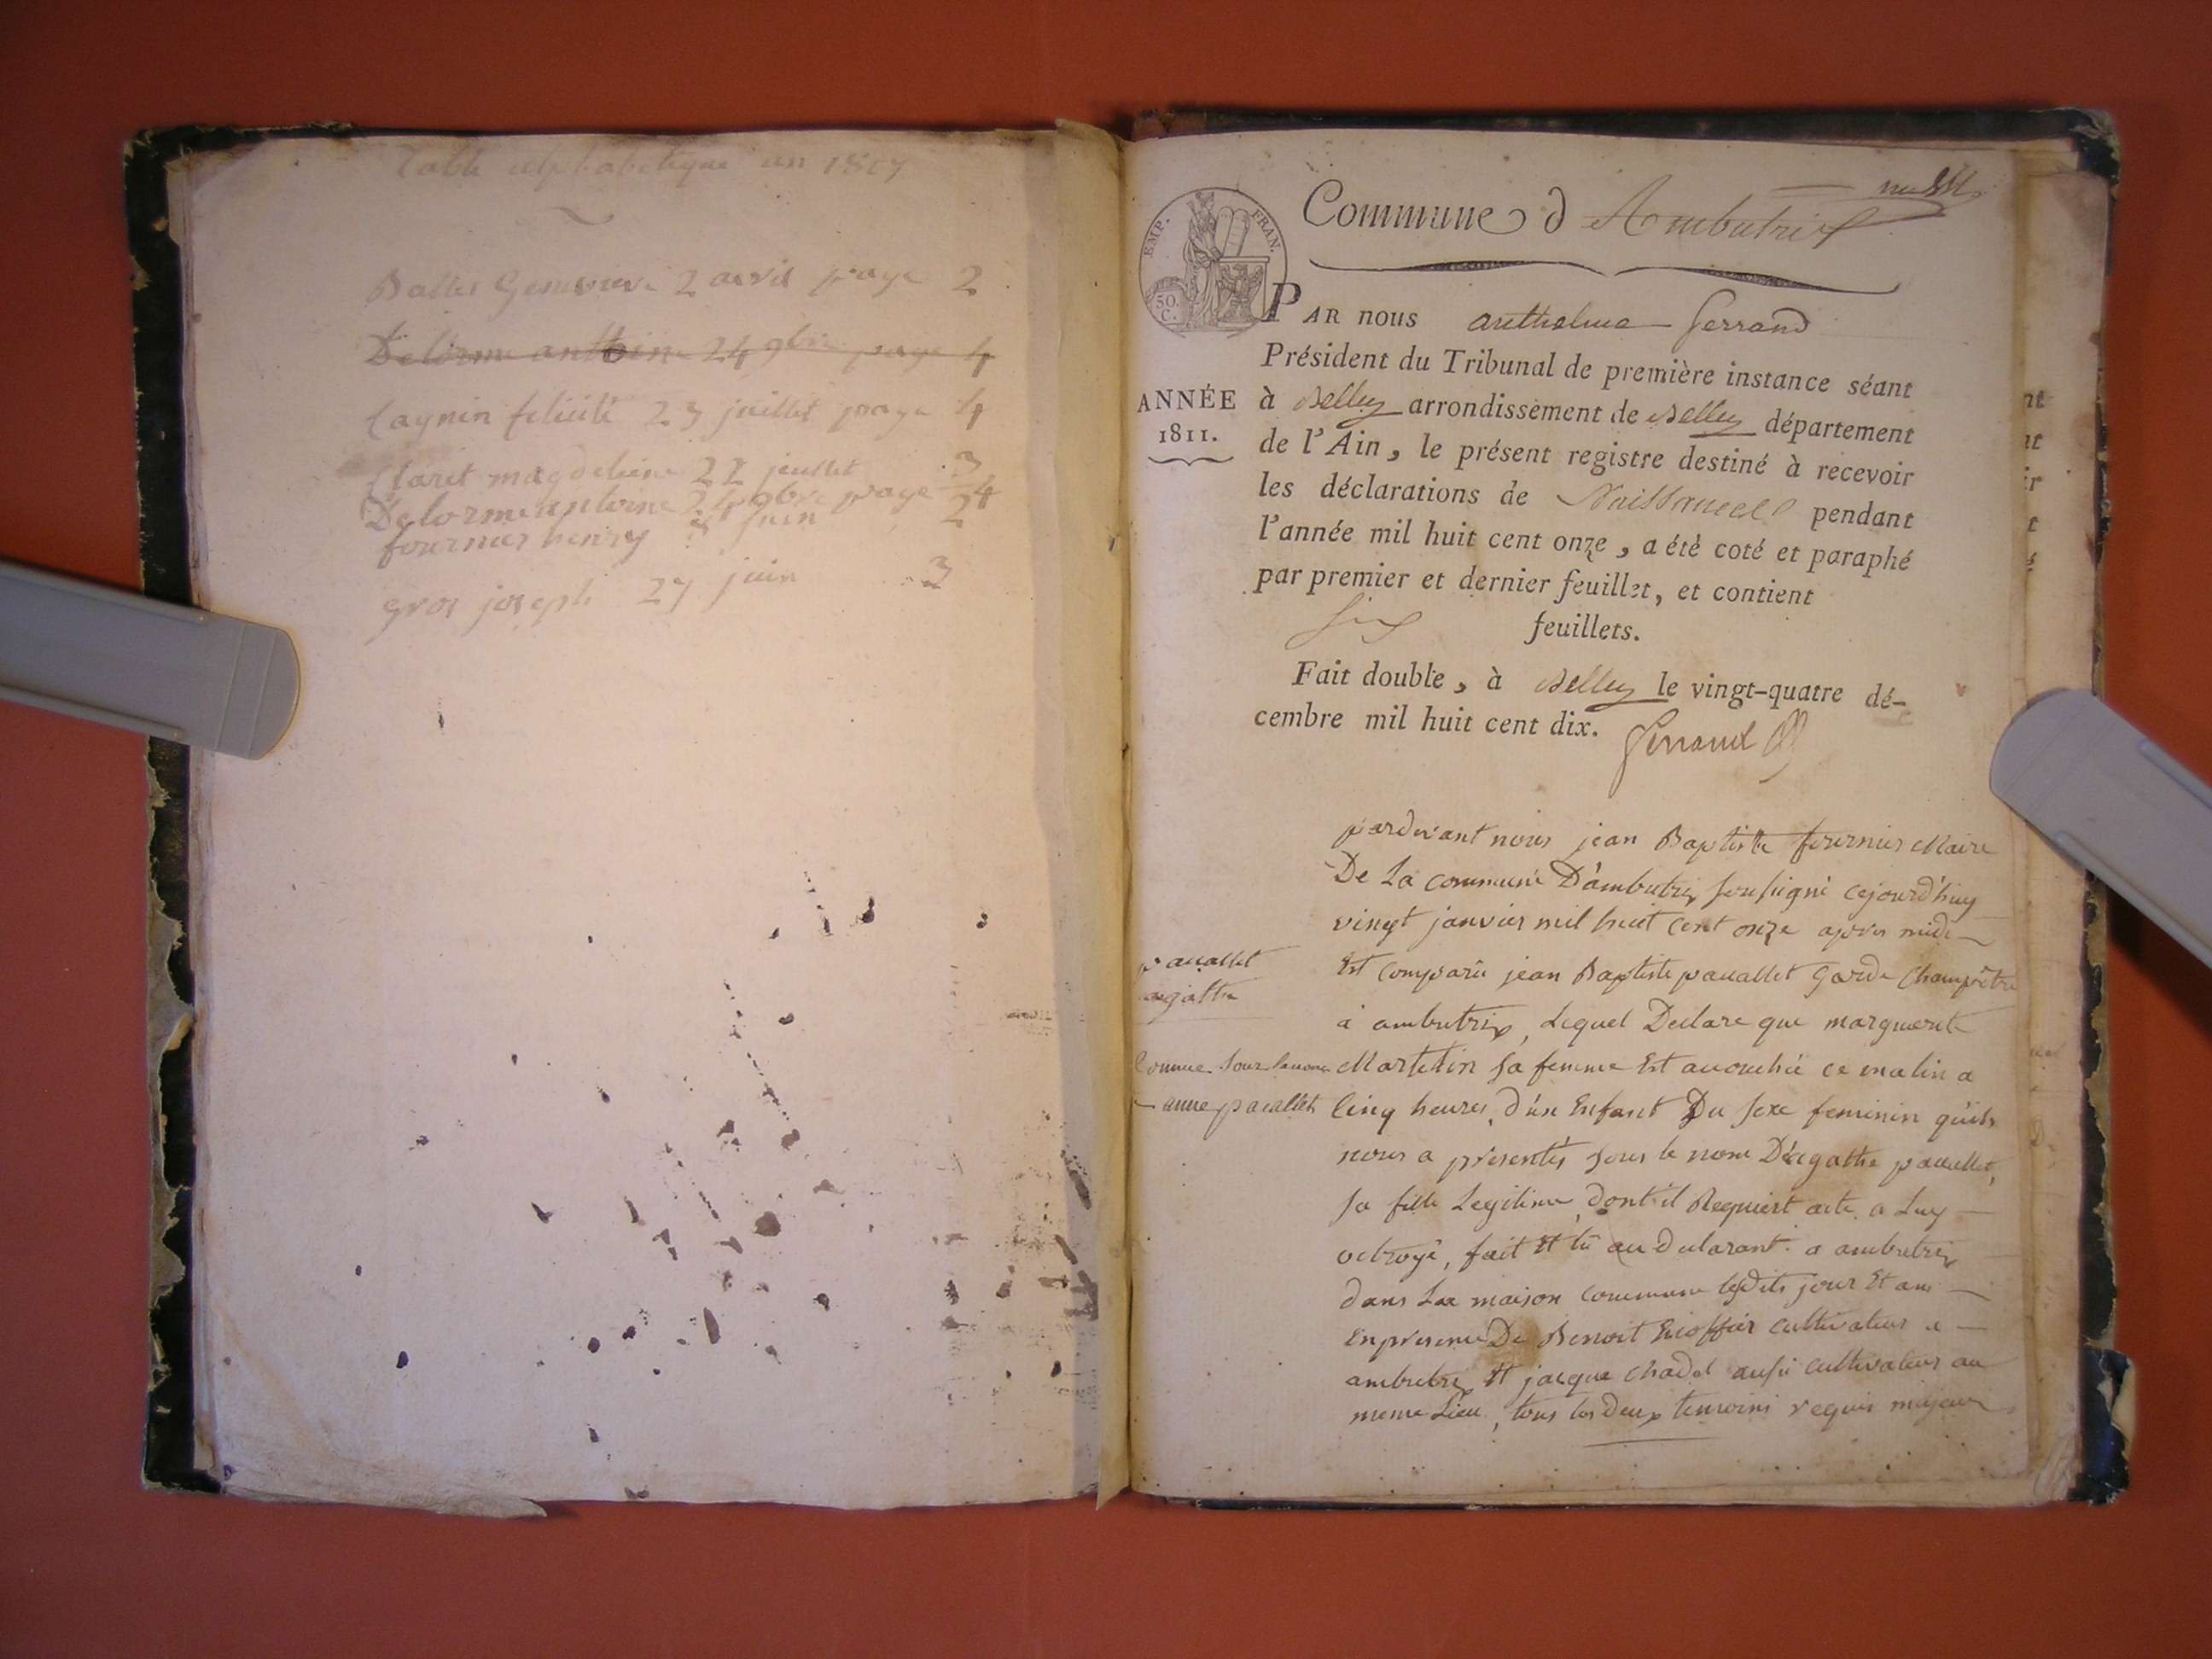 Table alphabetique an 1807
Ballet Genevieve 2 avril page 2
Delorme anttoine 24 9bre page 4
Cagnin felicité 23 juillet page 4
Claret magdeleine 22 juillet 3
Delorme antoine 24 9bre page 4
fournier henry juin 2
gros joseph 27 juin 3
Commune d Ambutrix
EMP. FRAN.
50. C.
PAR nous anthelme ferrand
Président du Tribunal de première instance séant
ANNÉE 1811.
à Belley arrondissement de Belley département
de l'Ain, le présent registre destiné à recevoir
les déclarations de Naissances pendant
l'année mil huit cent onze, a été coté et paraphé
par premier et dernier feuillet, et contient
six feuillets.
Fait double, à Belley le vingt-quatre dé-
cembre mil huit cent dix. ferrand
pardevant nous jean Baptiste fournier Maire
De La commune D'ambutrix soussigné cejourd'huy
vingt janvier mil huit cent onze apres midi
pavallet
agathe
Est comparu jean Baptiste pavallet Garde Champêtre
a ambutrix, Lequel Declare que marguerite
Connue sous le nom
Martelin sa femme Est accouchée ce matin a
anne pavallet
Cinq heures, d'un Enfant Du sexe feminin qu'ils
nous a presentés sous le nom D'agathe pavallet,
sa fille Legitime, dont il Requiert acte a Luy
octroyé, fait Et lû au declarant a ambutrix
dans La maison commune lesdits jour Et an
En presence De Benoit cultivateur a
ambutrix Et jacque chadel aussi cultivateur au
meme Lieu, tous les deux temoins requis majeur